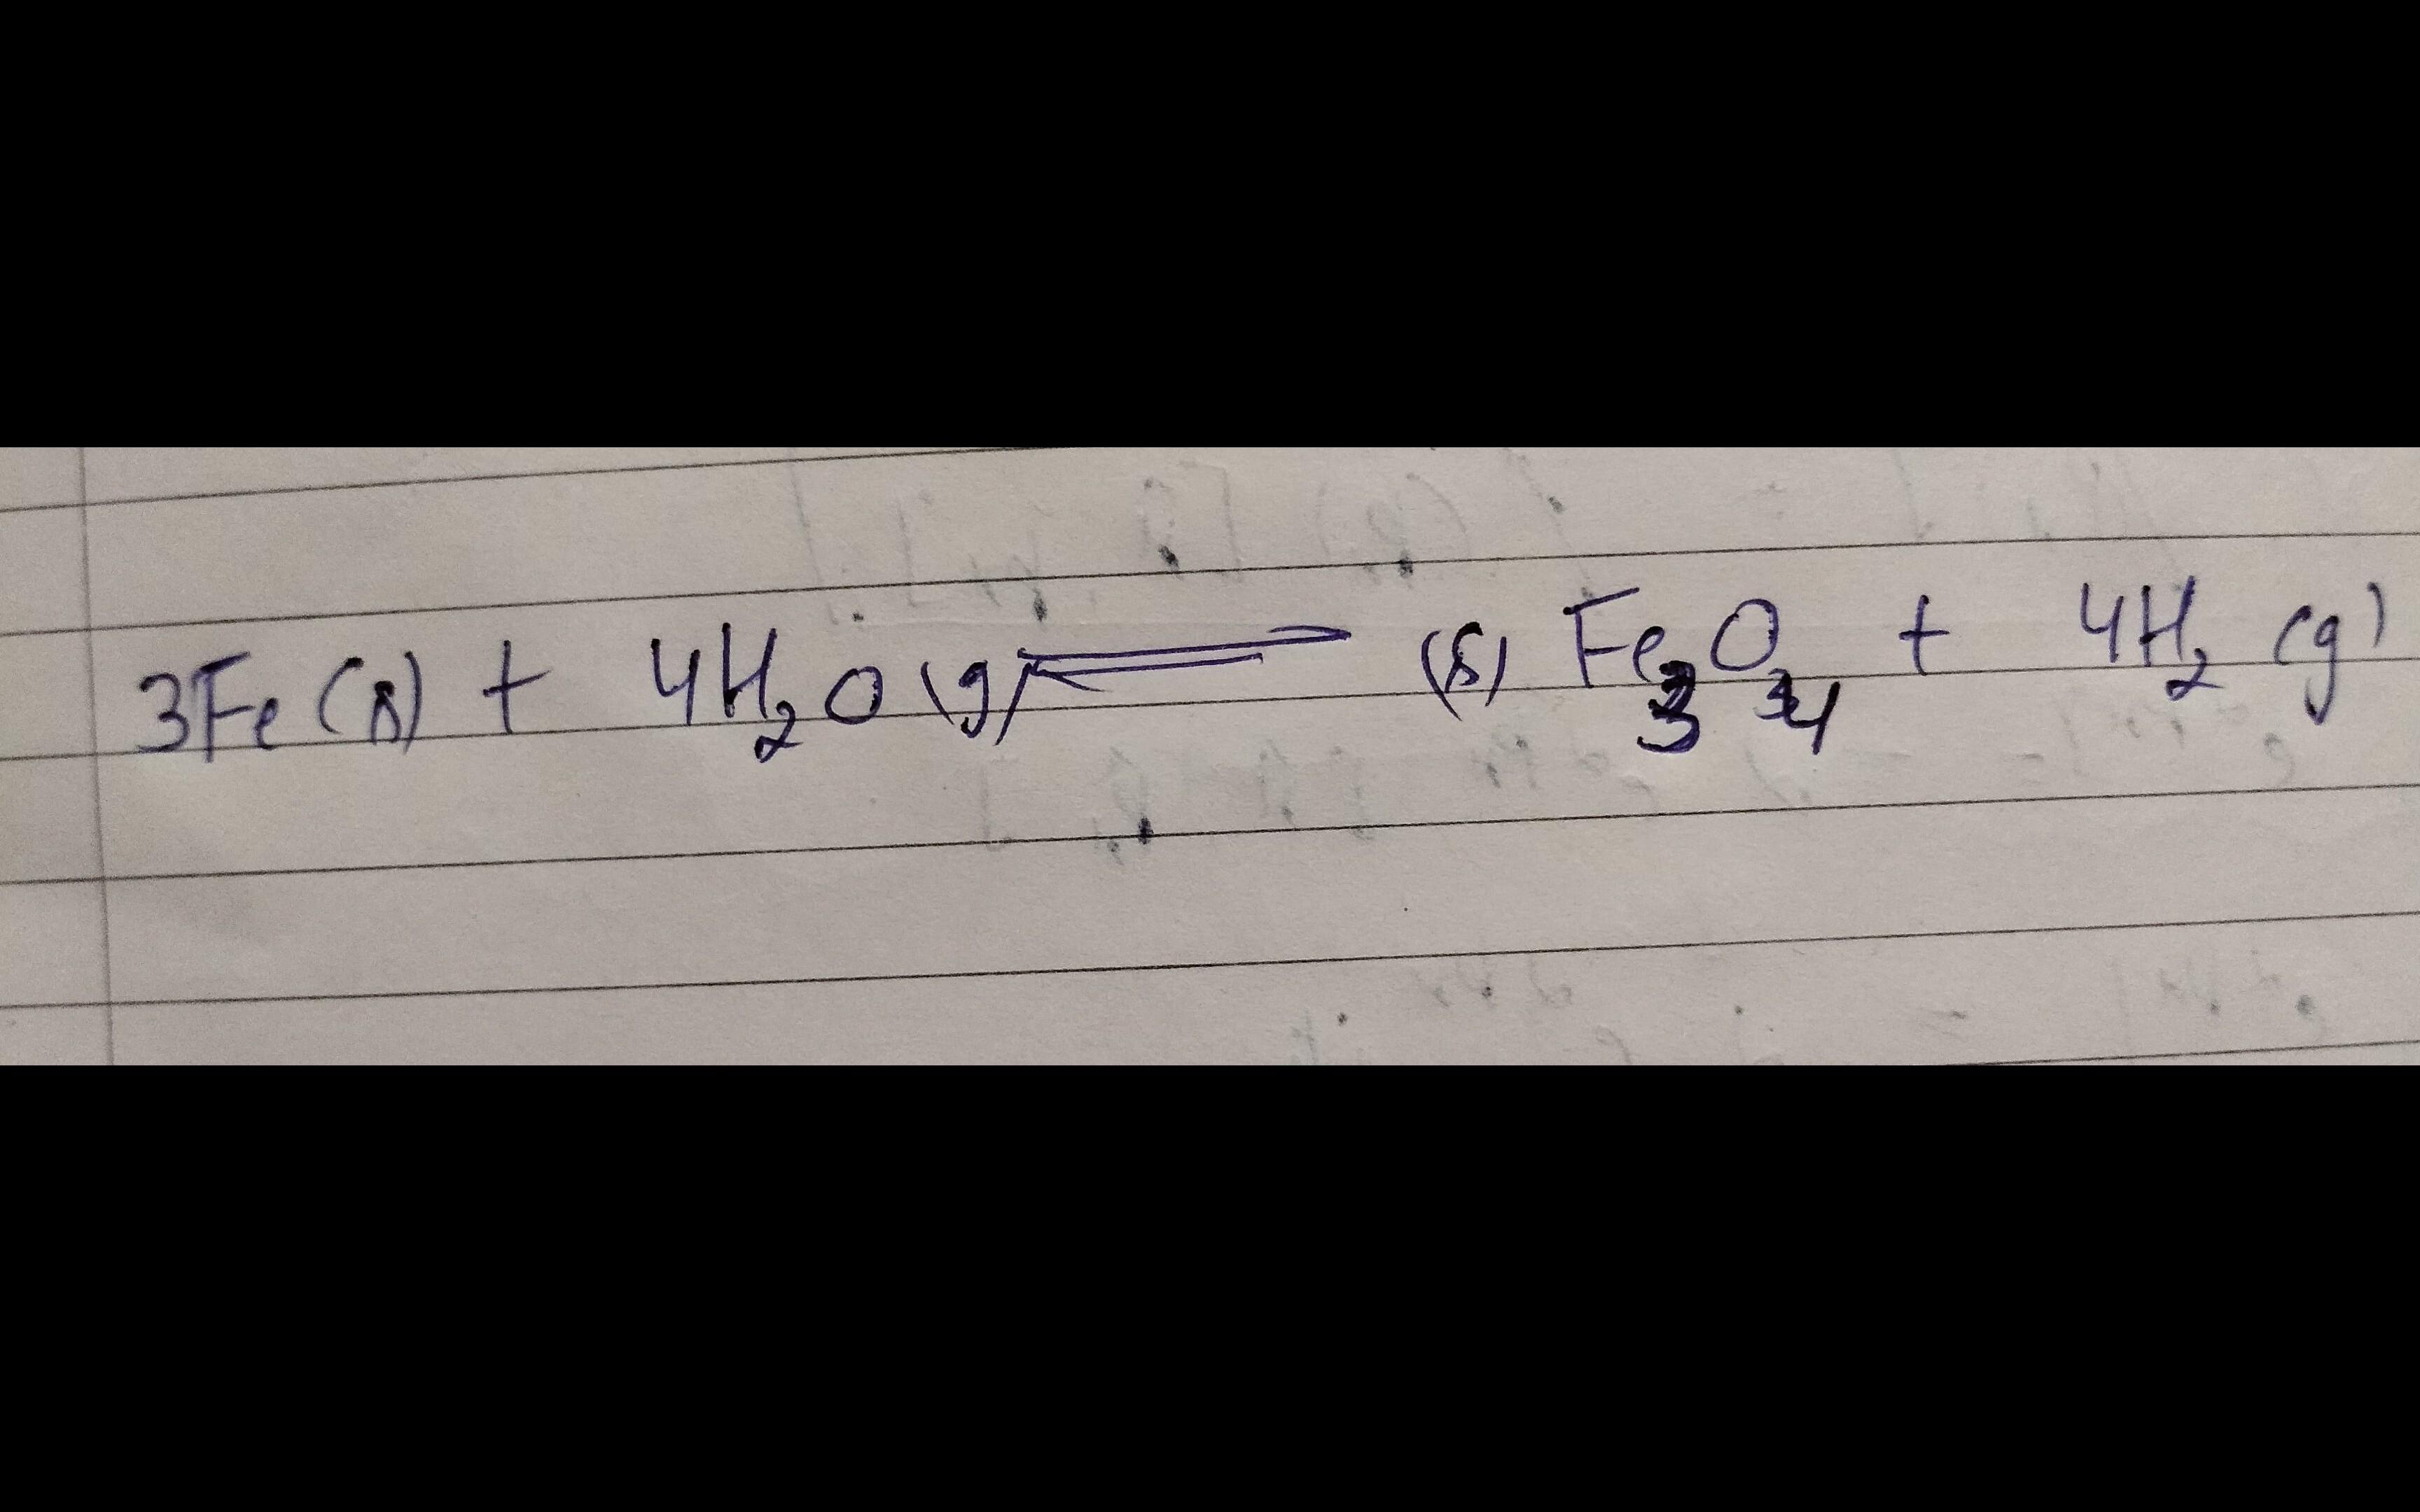 3Fe(s) + 4H₂O(g) ⇌ (s) Fe₃O₄ + 4H₂ (g)